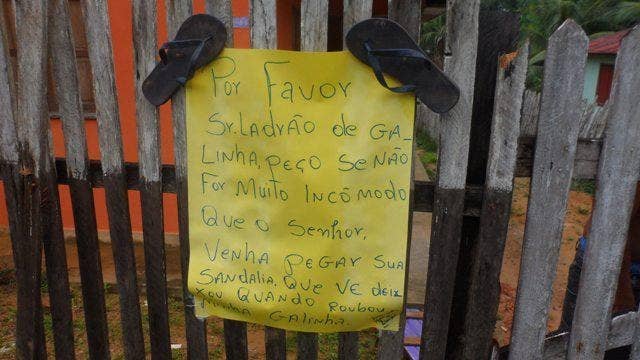 Por Favor
Sr. Ladrão de GA-
LINHA, PEÇO SE NÃO
For Muito Incômodo
Que o Senhor,
VENHA PEGAR SUA
SANDALIA, QUE VC DEIX
ou QUANDO ROUBOU
MINHA GALINHA.